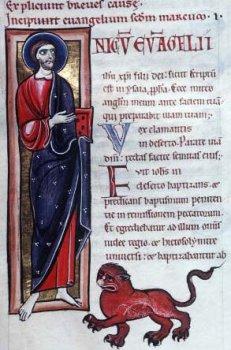 Expliciunt breves cause.
Incipiunt euangelium scdm marcum · I ·
NICV EVAGELII
ihu xpi filii dei: sicut scriptu
est in ysaia, ppha. Ecce mitto
anglm meum ante faciem tuã
qui preparabit uiam tuam;
Vox clamantis
in deserto. Parate uiã
dni: rectas facite semitas eius;
Fuit iohis in
deserto baptizans et
predicans baptismum peniten
tie in remissionem peccatorum.
Et egrediebatur ad illum omnis
iudee regio et hierosolymite
uniuersi: et baptizabantur ab